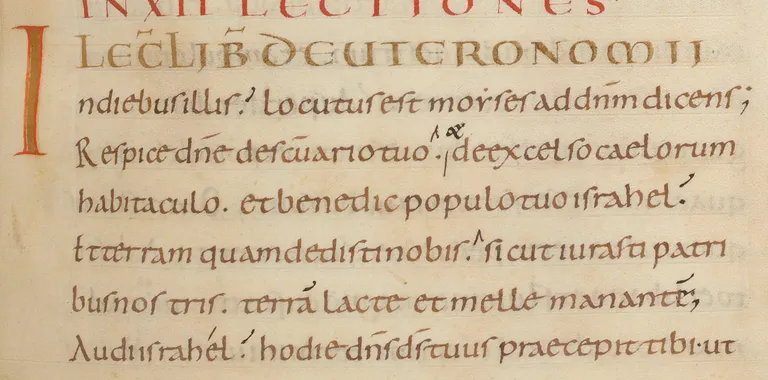 IN XII LECTIONES
LEC̄ LIB̄ DEUTERONOMII
In diebus illis. locutus est moẏses ad dn̄m dicens;
Respice dn̄e de sc̄uario tuo. & de excelso caelorum
habitaculo. et benedic populo tuo israhel.
Et terram quam dedisti nobis. sicut iurasti patri
bus nostris. terrā lacte et melle manantē;
Audi israhel. hodie dn̄s ds̄ tuus praecepit tibi. ut